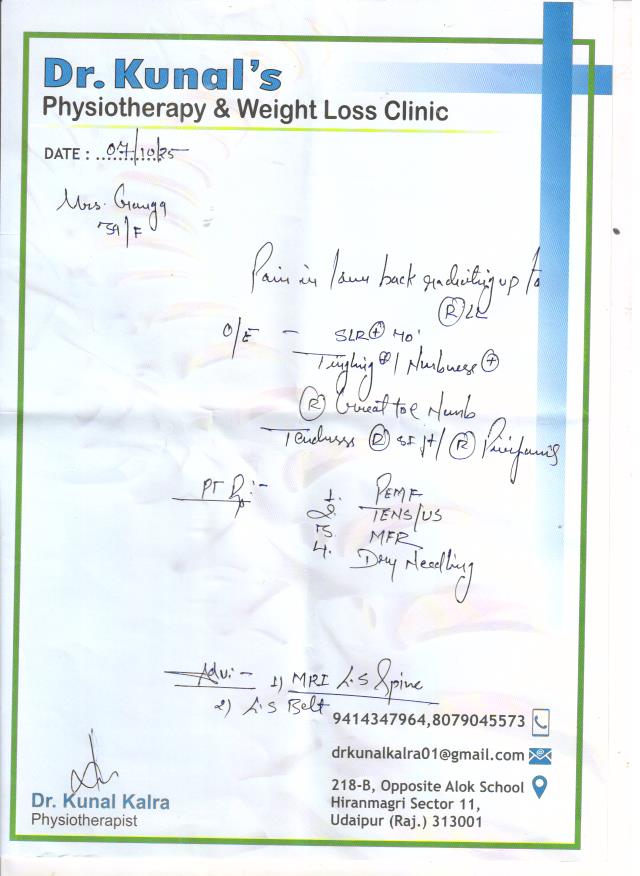 Dr. Kunal's
Physiotherapy & Weight Loss Clinic
DATE : 07/10/25
Mrs. Ganga
59/F
Pain in lower back radiating up to
(R) LL
O/E - SLR (+) 40°
Tingling (+) / Numbness (+)
(R) Great toe Numb
Tenderness (R) SI jt / (R) Piriformis
PT Rx :-
1. PEMF
2. TENS/US
3. MFR
4. Dry Needling
Adv :- 1) MRI L.S Spine
2) L.S Belt
9414347964,8079045573
drkunalkalra01@gmail.com
Dr. Kunal Kalra
Physiotherapist
218-B, Opposite Alok School
Hiranmagri Sector 11,
Udaipur (Raj.) 313001